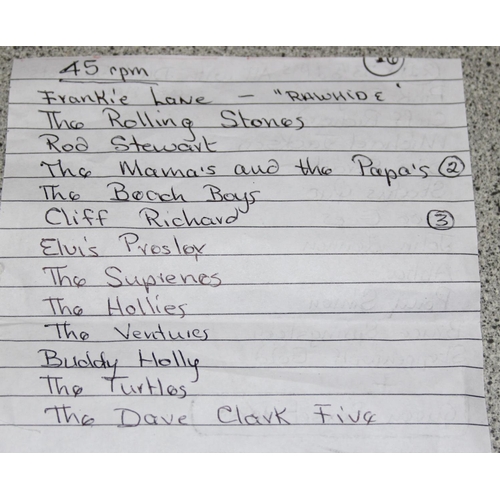 45 rpm 26
Frankie Lane - "RAWHIDE"
The Rolling Stones
Rod Stewart
The Mama's and the Papa's 2
The Beach Boys
Cliff Richard 3
Elvis Presley
The Supremes
The Hollies
The Ventures
Buddy Holly
The Turtles
The Dave Clark Five